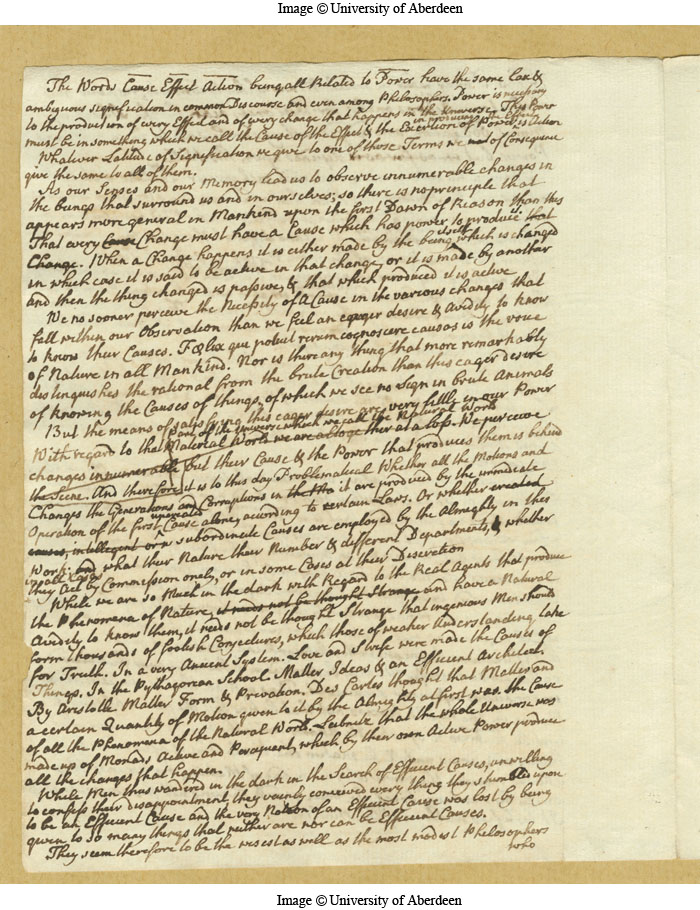 Image © University of Aberdeen
The Words Cause Effect Action being all Related to Power have the same lax &
ambiguous signification in common Discourse and even among Philosophers. Power is necessary
to the production of every Effect and of every change that happens in the Universe. This Power
must be in something which we call the Cause of the Effect & the Exertion of Power in producing the Effect is Action
Whatever Latitude of Signification we give to one of those Terms we must of Consequence
give the same to all of them.
As our Senses and our Memory lead us to observe innumerable changes in
the beings that surround us and in ourselves; so there is no principle that
appears more general in Mankind upon the first Dawn of Reason than this
That every Cause Change must have a Cause which has power to produce it that
Change. When a Change happens it is either made by the being itself which is changed
in which case it is said to be active in that change, or it is made by another
and then the thing changed is passive & that which produced it is active
We no sooner perceive the Necessity of A Cause in the various changes that
fall within our Observation than we feel an eager desire & Avidity to know
to know their Causes. Felix qui potuit rerum cognoscere causas is the voice
of Nature in all Mankind. Nor is there any thing that more remarkably
distinguishes the rational from the brute Creation than this eager desire
of knowing the Causes of things, of which we see no sign in brute Animals
But the means of satisfying this eager desire are very little in our Power
With regard to that part of the Universe which we call the Natural World
Material World we are altogether at a loss. We perceive
changes innumerable but their Cause & the Power that produces them is behind
the Scene. And therefore it is to this day Problematical Whether all the Motions and
Changes the Generations and Corruptions in it are produced by the immediate
Operation of the first Cause alone, according to certain Laws. Or whether created
causes, intelligent or unintelligent subordinate Causes are employed by the Almighty in this
Work; and what their Nature their Number & different Departments, & whether
in all cases they Act by Commission only, or in some Cases at their Discretion
While we are so Much in the dark with Regard to the Real Agents that produce
the Phenomena of Nature, it needs not be thought Strange and have a Natural
Avidity to know them, it needs not be thought Strange that ingenious Men should
form thousands of foolish Conjectures, which those of weaker Understanding take
for Truth. In a very Ancient System. Love and Strife were made the Causes of
Things. In the Pythagorean School. Matter Ideas & an Efficient Architect.
By Aristotle Matter Form & Privation. Des Cartes thought that Matter and
a certain Quantity of Motion given to it by the Almighty at first was the Cause
of all the Phenomena of the Natural World. Leibnitz that the whole Universe was
made up of Monads Active and Percipient, which by their own Active Power produce
all the changes that happen.
While Men thus wandred in the dark in the Search of Efficient Causes, unwilling
to confess their disappointment they vainly conceived every thing they stumbled upon
to be an Efficient Cause and the very Notion of an Efficient Cause was lost by being
given to so many things that neither are nor can be Efficient Causes.
They seem therefore to be the wisest as well as the most modest Philosophers
who
Image © University of Aberdeen